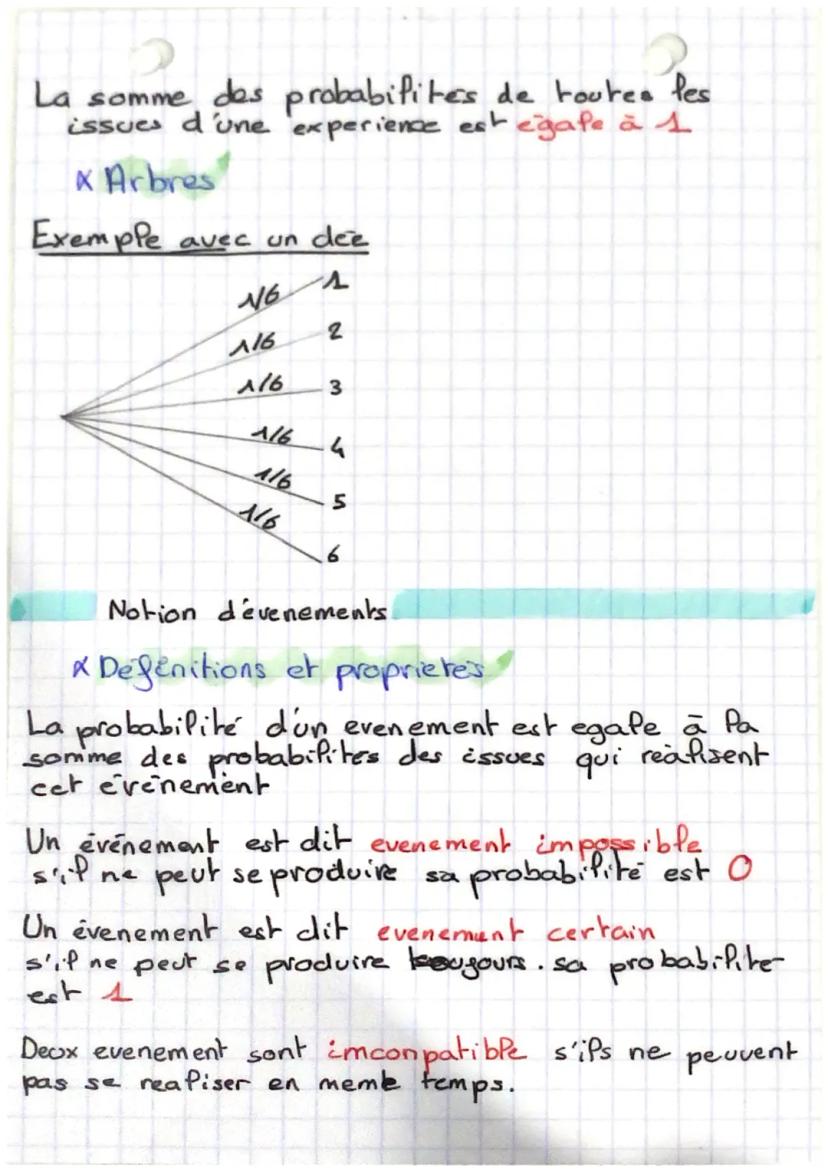 La somme des probabilites de toutes les
issues d'une experience est égale à 1
Arbres
Exemple avec un dée
1/6 1
1/6 2
1/6 3
1/6 4
1/6 5
1/6 6
Notion d'évenements
Définitions et proprietés
La probabilité d'un evenement est egale à la
somme des probabilités des issues qui réalisent
cet événement
Un événement est dit evenement impossible
s'il ne peut se produire sa probabilité est 0
Un évenement est dit evenement certain
s'il ne peut se produire tougours. sa probabilite
est 1
Deux evenement sont imconpatible s'ils ne peuvent
pas se realiser en meme temps.